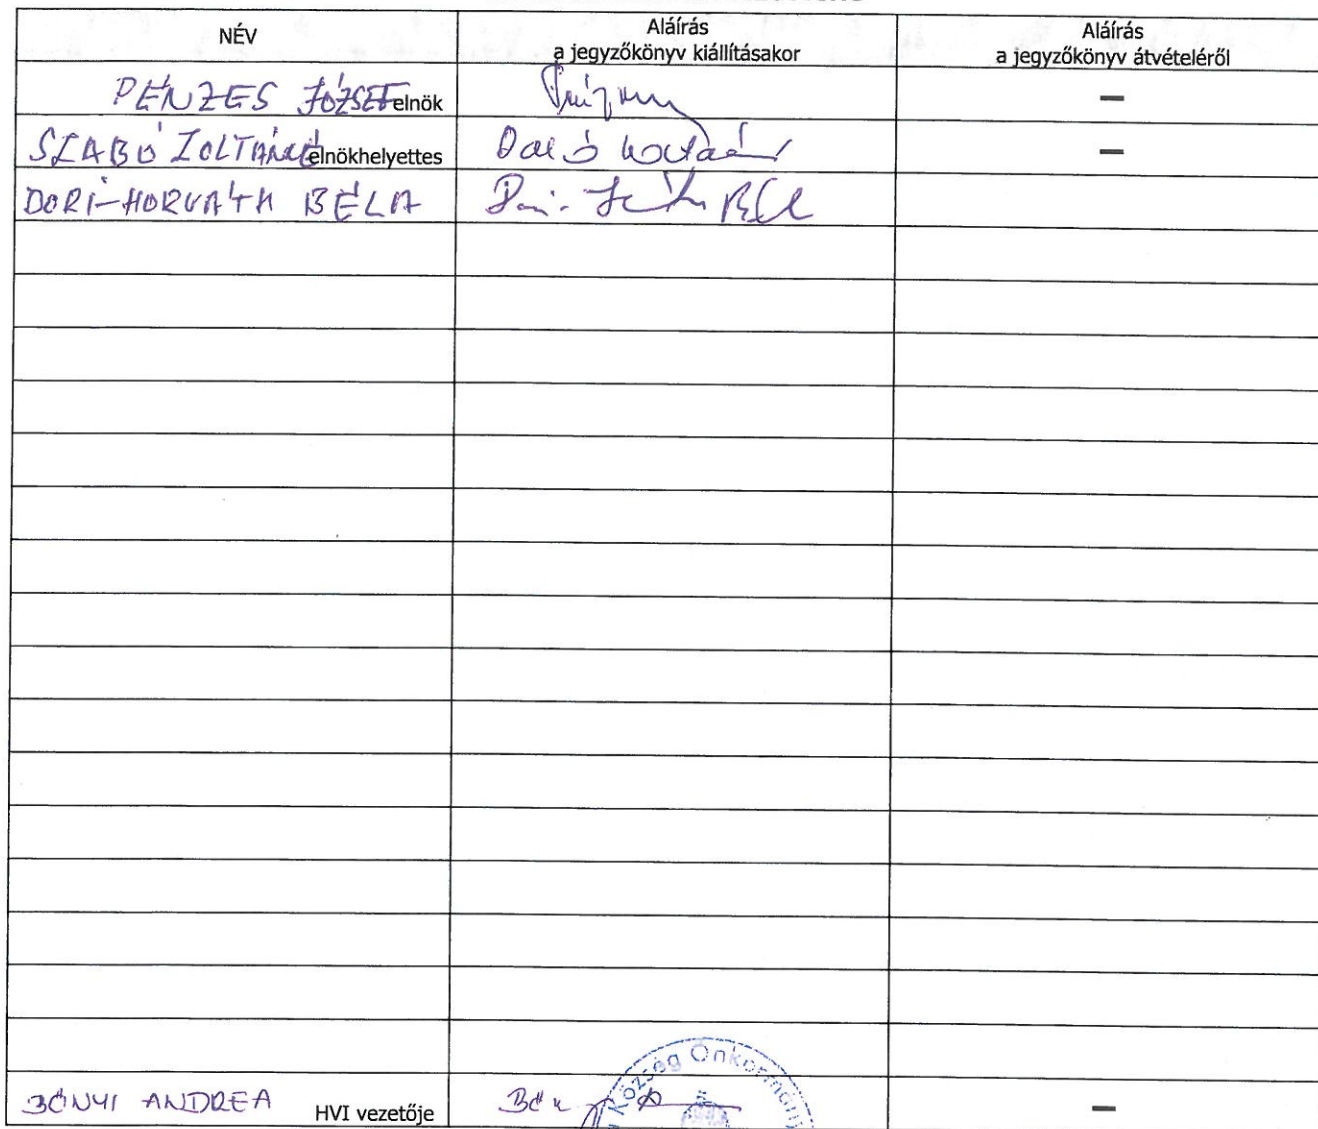 NÉV
Aláírás
a jegyzőkönyv kiállításakor
Aláírás
a jegyzőkönyv átvételéről
PÉNZES JÓZSEF elnök
—
SZABÓ ZOLTÁNNÉ elnökhelyettes
—
DORI-HORVÁTH BÉLA
Község Önkormány
BÓNYI ANDREA HVI vezetője
—